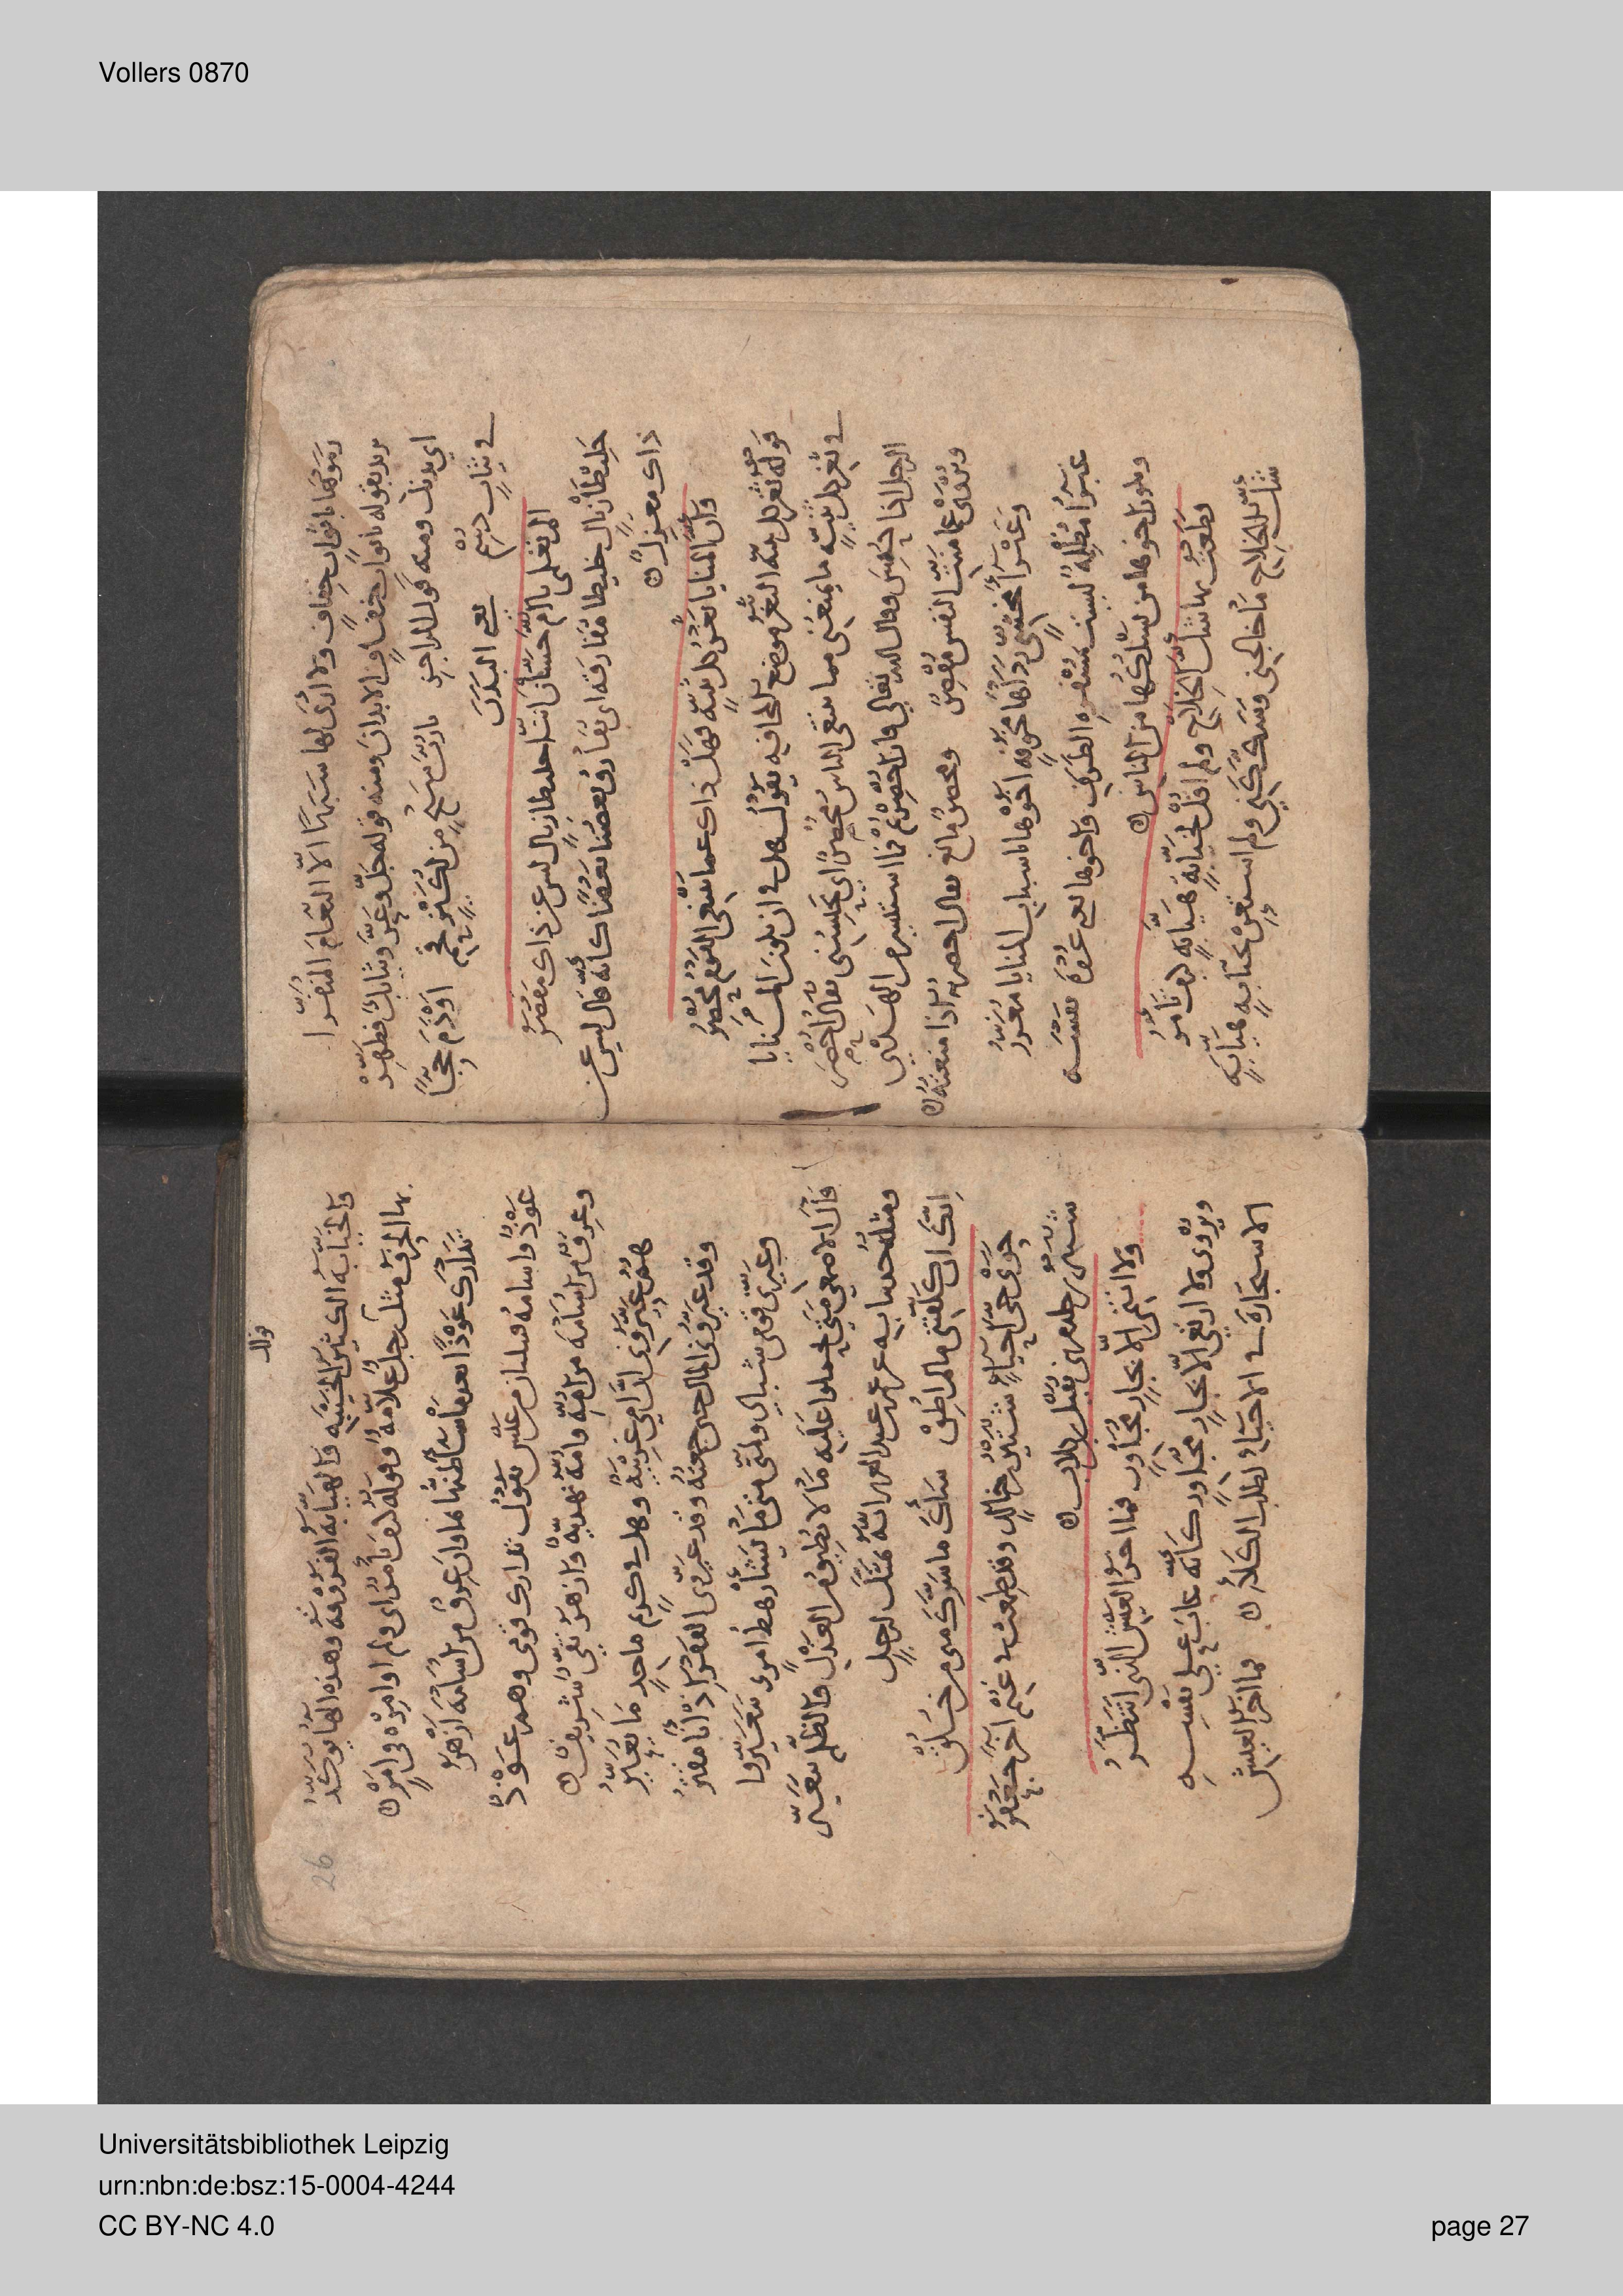 Vollers 0870
رموها باثواب خفاف ولا ترى لها شبها الا النعام المنفرا
يريد بقوله باثواب خفاف الابدان ومنه قوله جل وعز وثيابك فطهر
اي بدنك ومنه قول الراجز يا رب شيخ من لكيز فخم اوذم حجا
في ثياب دسم يعني البدن
الم تعلمي يا ام حسان اننا خليطا زيال ليس عن ذاك مقصر
خليطا زيال خليطا مفارقة اي يفارق بعضنا بعضا كانه قال ليس عن
ذاك معزل
وان المنايا ثغر كل ثنية فهل ذاك عما يبتغي القوم محصر
قوله ثغر كل ثنية الثغر موضع المخافة يقول هل في ان تكون المنايا
في ثغر كل ثنية ما يمنعني مما يبتغي الناس محصر اي يحبسني يقال احصر
الرجل اذا حبس وقال الله تعالى فان احصرتم فما استيسر من الهدي
ويروى عما منت النفس مقصر ومحصر مانع يقال احصرته اذا منعته
وغبراء مخشي رداها مخوفة اخوها باسباب المنايا مغرر
غبراء مظلمة ليست بمسفرة الطرق واخوها يعني عروة نفسه
ويكون اخوها من سلكها من الناس
قطعت بها شك الخلاج ولم اقل لخيابة هيابة كيف تامر
شك الخلاج ما خالجني وشككني ولم استعن بخيابة هيابة
26
والخيابة الكثير الخيبة والهيابة الفروقة وهذه الها يوكد
بها الحرف مثل رجل علامة وقوله كيف تامر اي ولم اوامره في امر
تدارك عوذا بعد ما ساء ظنها بماوان عرق من اسامة ازهر
عوذ واسامة قبيلتان من عبس يقول تدارك قومي وهم عوذ
وعرق من اسامة من امه وامه نهدية وازهر نقي شريف
هم عيروني ان امي غريبة وهل في كريم ماجد ما يعير
وقد عيروني المال حين جمعته وقد عيروني الفقر اذ انا مقتر
وعيرني قومي شبابي ولمتي متى ما يشا رهط امرئ يتعيرا
قال الاصمعي متى يحملوا عليه ما لا يطيق من العذل والظلم تعير
ومثله حدثنا به عن عمر بن عبد العزيز انه تمثل لرجل
انك ان كلفتني ما لم اطق ساءك ما سرك مني من خلق
حوى حي احياء شتير بن خالد وقد طمعت في غنم اخر جعفر
شتير بن خالد من بني نفيل بن كلاب
ولا انتمي الا لجار مجاور فما اخر العيش الذي اتنظر
ويروى ولا ارتعي الا بجار مجاور كانه عاب على نفسه
الاستجارة في الاحياء لطلب الكلا فما اخر العيش
Universitätsbibliothek Leipzig
urn:nbn:de:bsz:15-0004-4244
CC BY-NC 4.0
page 27